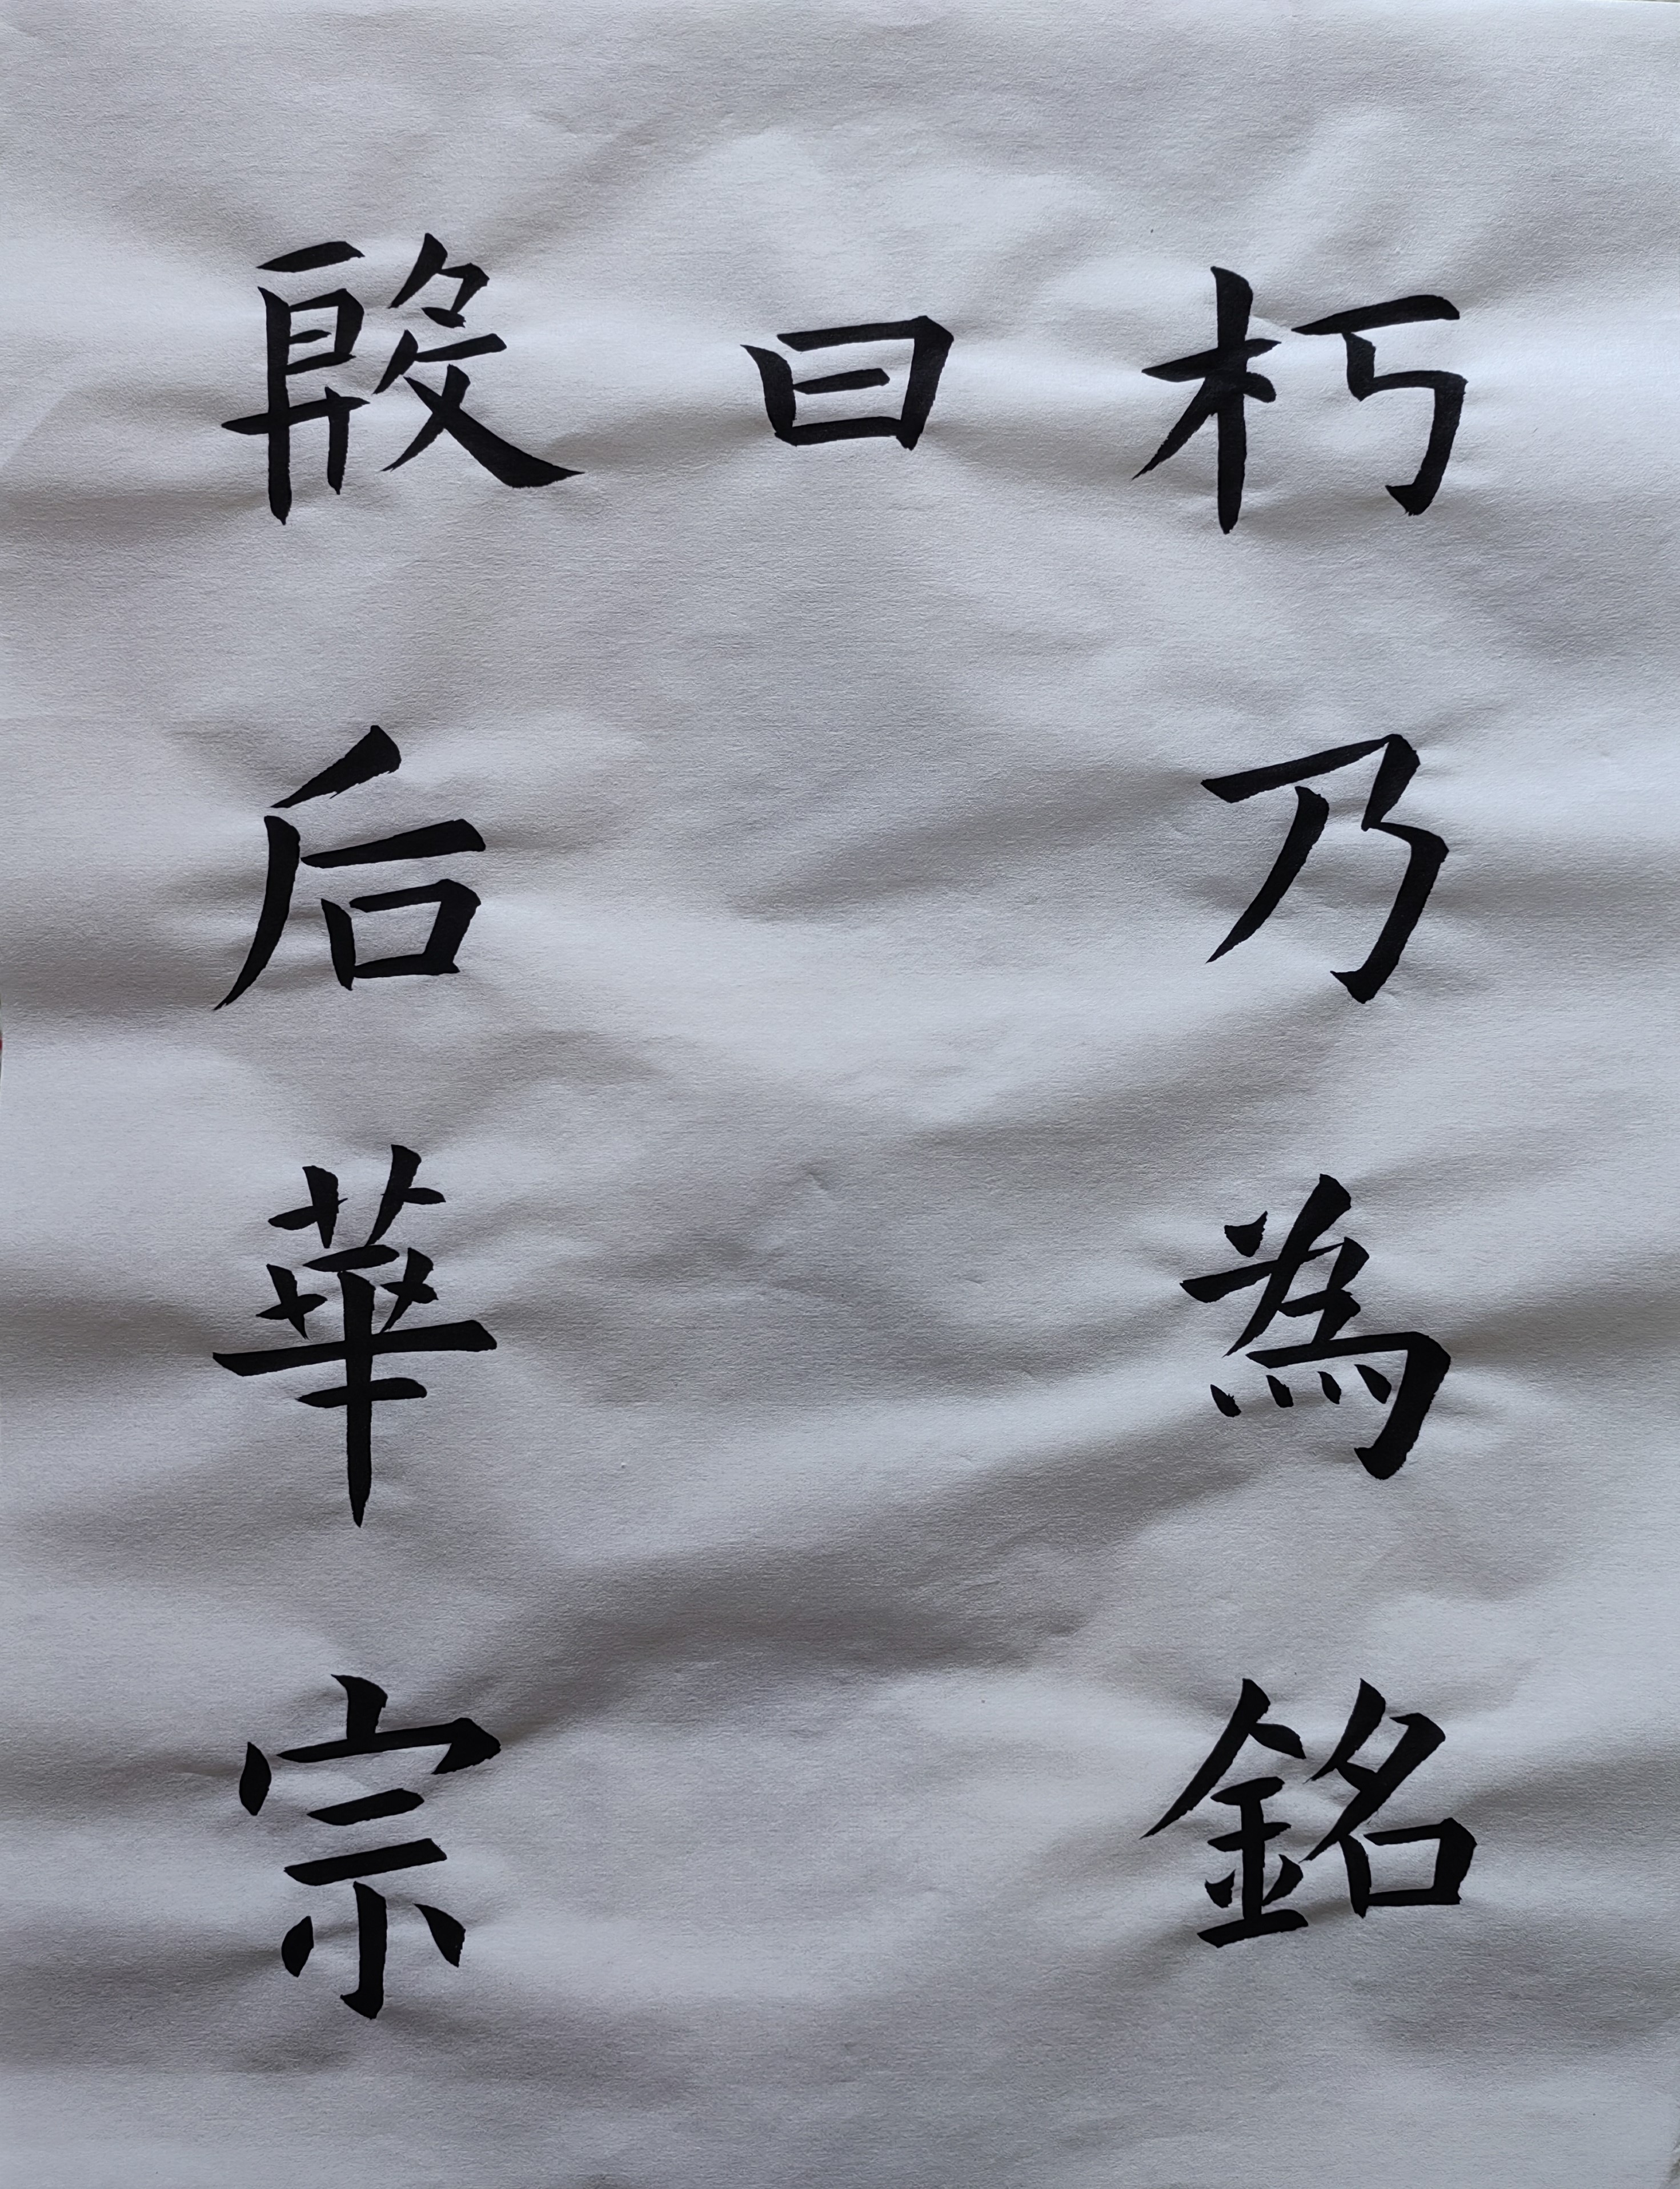 朽乃為銘
曰
殷后華宗